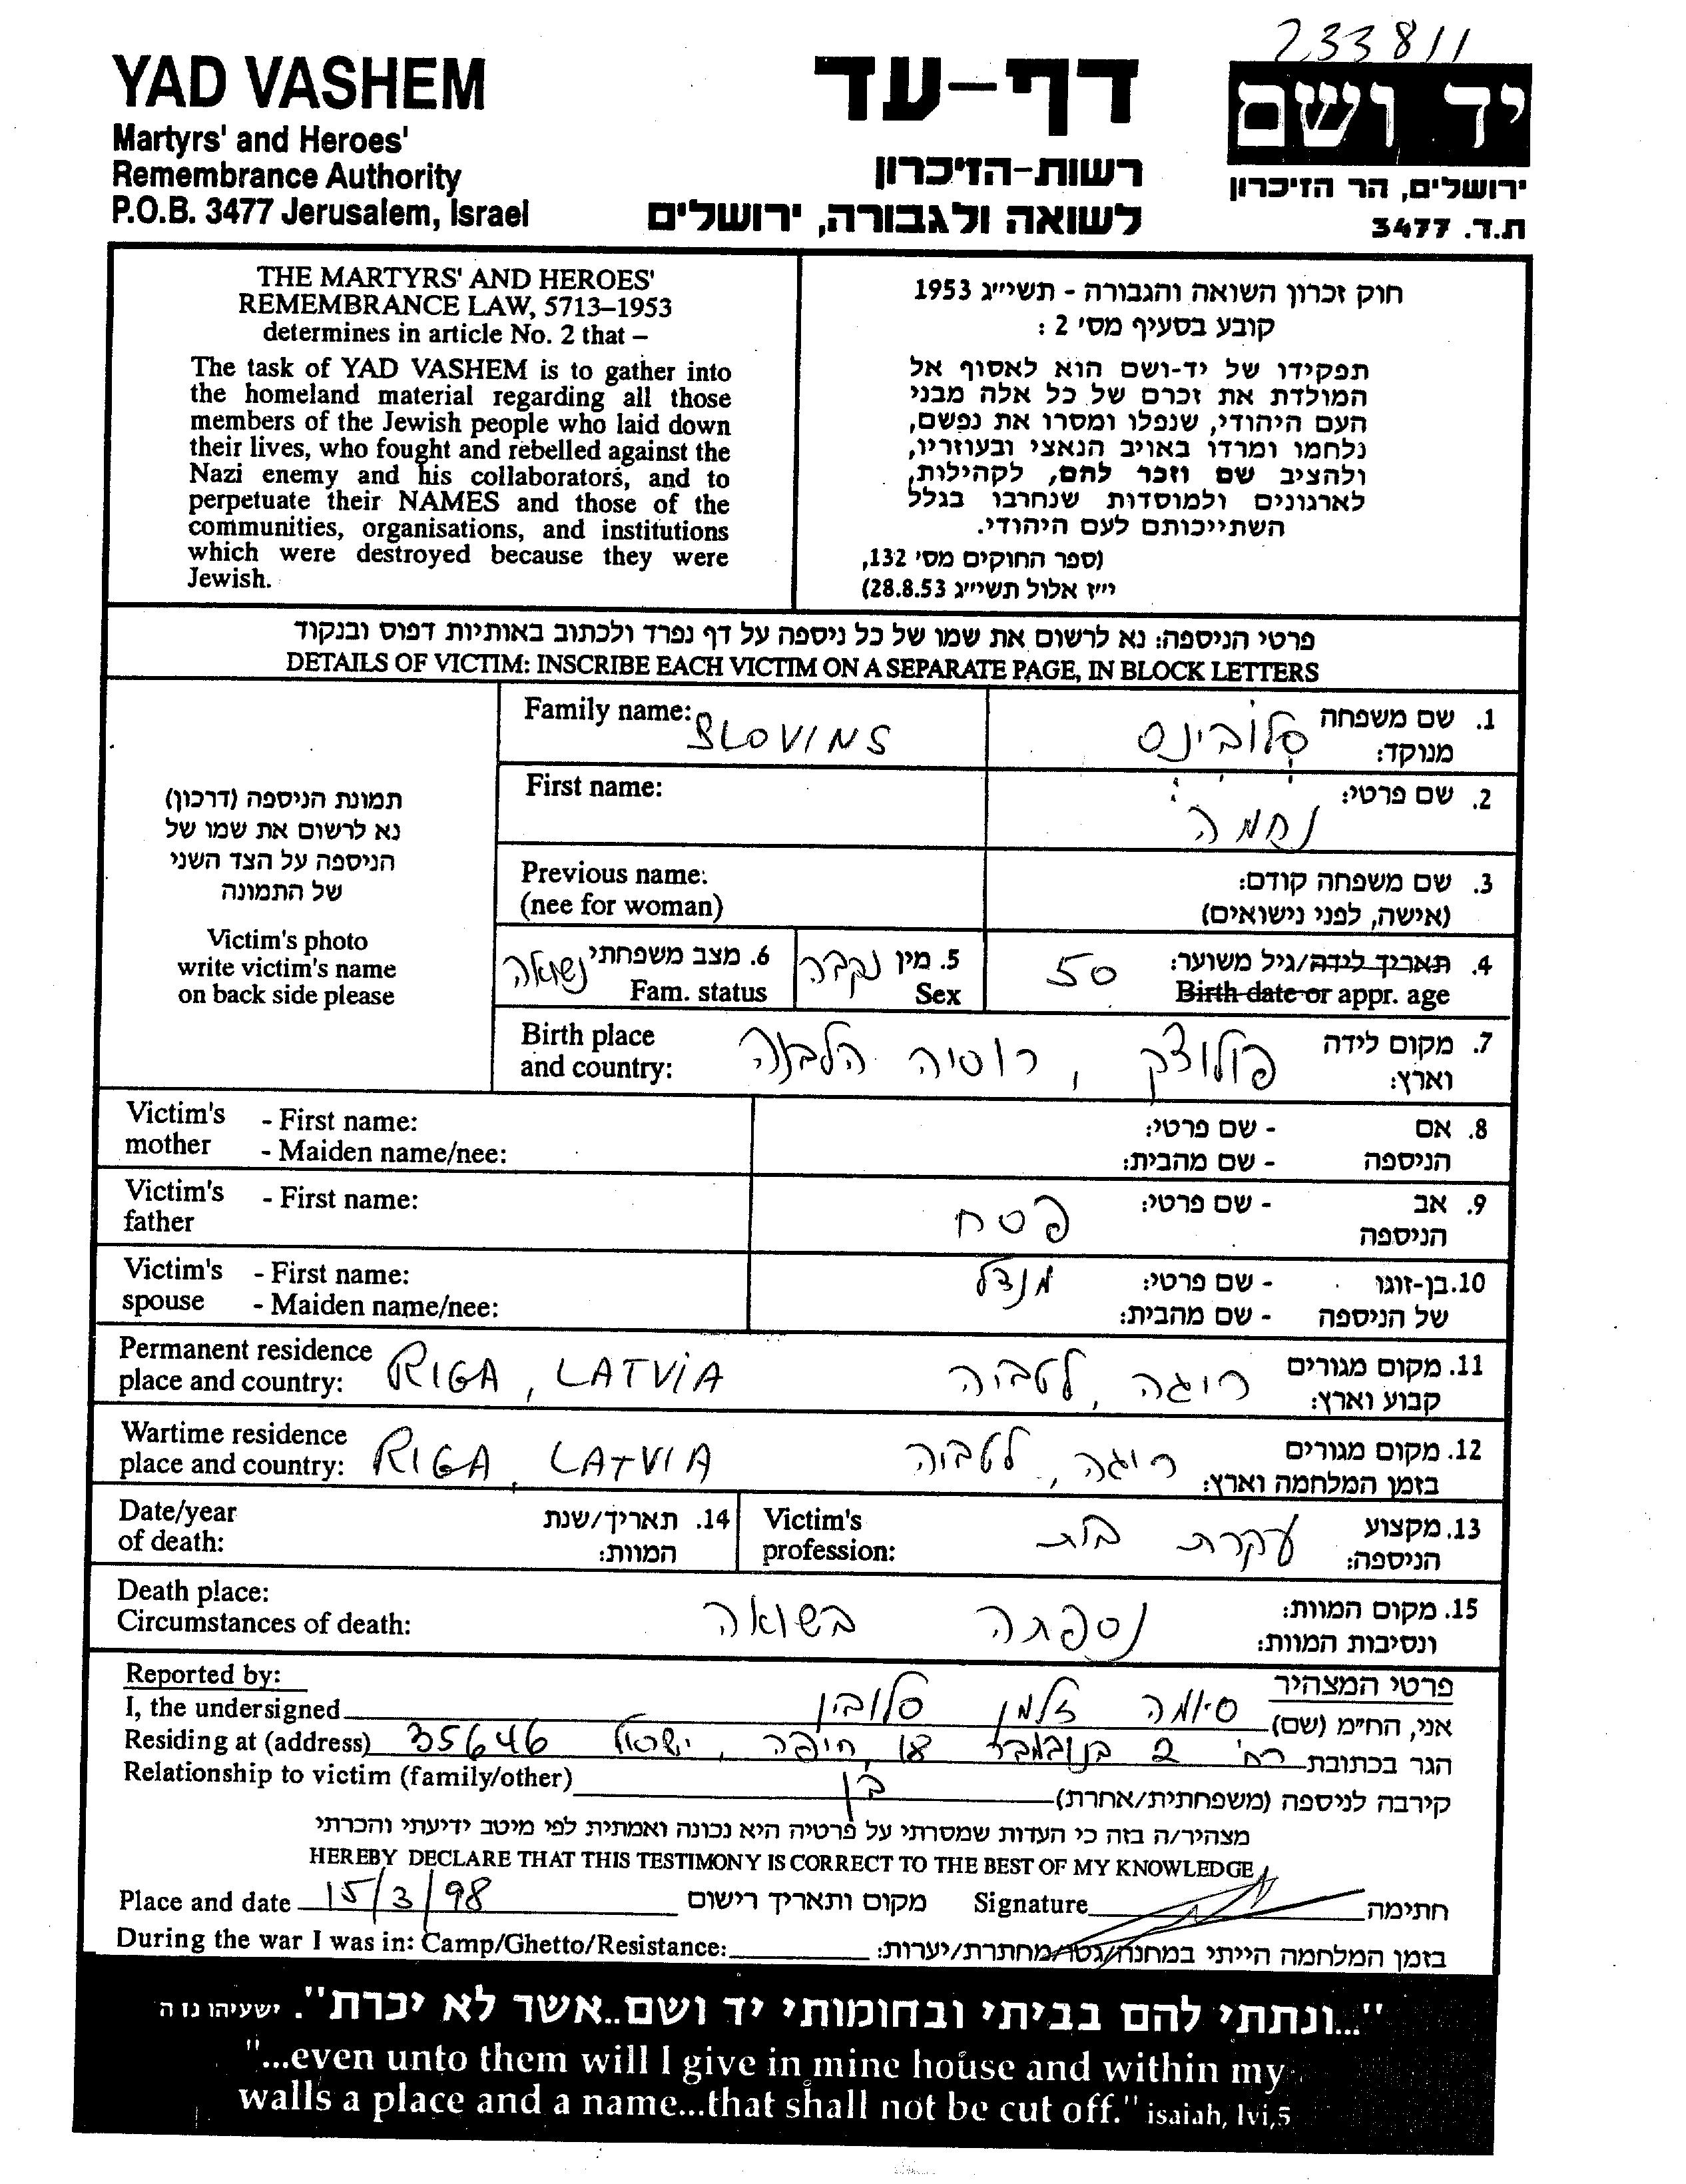 233811
YAD VASHEM
Martyrs' and Heroes'
Remembrance Authority
P.O.B. 3477 Jerusalem, Israel
דף-עד
רשות-הזיכרון
לשואה ולגבורה, ירושלים
יד ושם
ירושלים, הר הזיכרון
ת.ד. 3477
THE MARTYRS' AND HEROES'
REMEMBRANCE LAW, 5713–1953
determines in article No. 2 that –
The task of YAD VASHEM is to gather into
the homeland material regarding all those
members of the Jewish people who laid down
their lives, who fought and rebelled against the
Nazi enemy and his collaborators, and to
perpetuate their NAMES and those of the
communities, organisations, and institutions
which were destroyed because they were
Jewish.
חוק זכרון השואה והגבורה - תשי״ג 1953
קובע בסעיף מס׳ 2 :
תפקידו של יד-ושם הוא לאסוף אל
המולדת את זכרם של כל אלה מבני
העם היהודי, שנפלו ומסרו את נפשם,
נלחמו ומרדו באויב הנאצי ובעוזריו,
ולהציב שם וזכר להם, לקהילות,
לארגונים ולמוסדות שנחרבו בגלל
השתייכותם לעם היהודי.
(ספר החוקים מס׳ 132,
י״ז אלול תשי״ג 28.8.53)
פרטי הניספה: נא לרשום את שמו של כל ניספה על דף נפרד ולכתוב באותיות דפוס ובנקוד
DETAILS OF VICTIM: INSCRIBE EACH VICTIM ON A SEPARATE PAGE, IN BLOCK LETTERS
תמונת הניספה (דרכון)
נא לרשום את שמו של
הניספה על הצד השני
של התמונה
Victim's photo
write victim's name
on back side please
Family name: SLOVINS
1. שם משפחה מנוקד: סלובינס
First name:
2. שם פרטי: נחמה
Previous name:
(nee for woman)
3. שם משפחה קודם:
(אישה, לפני נישואים)
4. תאריך לידה/גיל משוער: 50
Birth date or appr. age
5. מין נקבה
Sex
6. מצב משפחתי נשואה
Fam. status
Birth place
and country:
7. מקום לידה
וארץ: פולוצק, רוסיה הלבנה
Victim's mother - First name:
- Maiden name/nee:
8. אם הניספה - שם פרטי:
- שם מהבית:
Victim's father - First name:
9. אב הניספה - שם פרטי: פסח
Victim's spouse - First name:
- Maiden name/nee:
10. בן-זוגו של הניספה - שם פרטי: מנדל
- שם מהבית:
Permanent residence
place and country: RIGA, LATVIA
11. מקום מגורים
קבוע וארץ: ריגה, לטביה
Wartime residence
place and country: RIGA, LATVIA
12. מקום מגורים
בזמן המלחמה וארץ: ריגה, לטביה
Date/year
of death:
14. תאריך/שנת
המוות:
Victim's
profession:
13. מקצוע
הניספה: עקרת בית
Death place:
Circumstances of death:
15. מקום המוות:
ונסיבות המוות: נספתה בשואה
Reported by:
פרטי המצהיר
I, the undersigned
אני, הח״מ (שם) סיומה זלמן סלובין
Residing at (address)
הגר בכתובת רח׳ 2 18, חיפה, ישראל 35646
Relationship to victim (family/other)
קירבה לניספה (משפחתית/אחרת) בן
מצהיר/ה בזה כי העדות שמסרתי על פרטיה היא נכונה ואמתית לפי מיטב ידיעתי והכרתי
HEREBY DECLARE THAT THIS TESTIMONY IS CORRECT TO THE BEST OF MY KNOWLEDGE
Place and date 15/3/98 מקום ותאריך רישום
Signature חתימה
During the war I was in: Camp/Ghetto/Resistance:
בזמן המלחמה הייתי במחנה/גטו/מחתרת/יערות:
"...ונתתי להם בביתי ובחומותי יד ושם..אשר לא יכרת". ישעיהו נו ה
"...even unto them will I give in mine house and within my
walls a place and a name...that shall not be cut off." isaiah, lvi,5